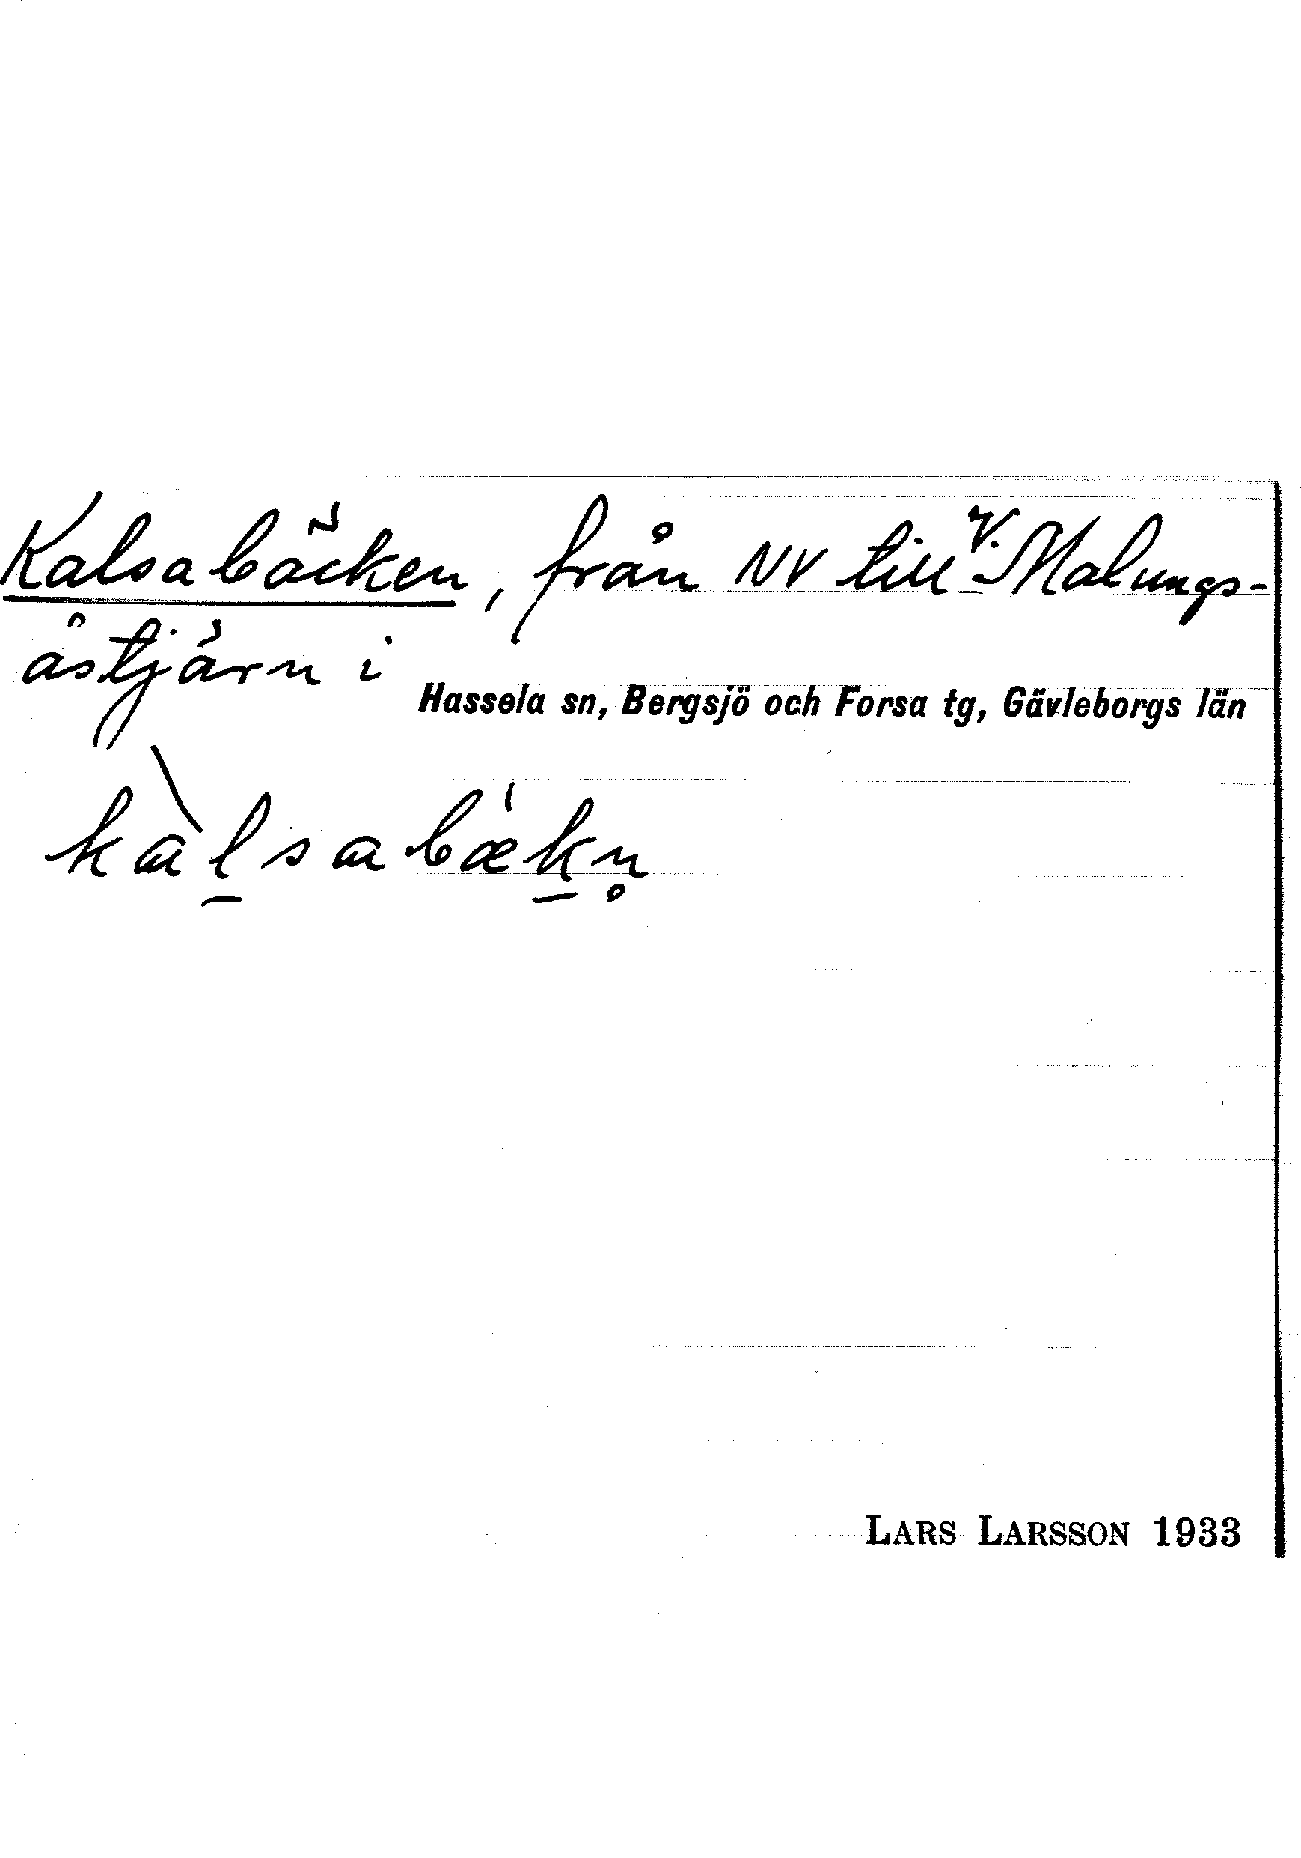 Kalsabäcken, från NV till V. Malungs-
åstjärn i
Hassela sn, Bergsjö och Forsa tg, Gävleborgs län
kàl̠sabækn̥
LARS LARSSON 1933